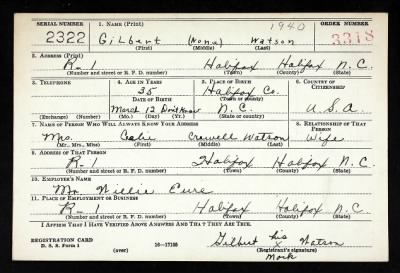 SERIAL NUMBER 1. NAME (Print) 1940 ORDER NUMBER
2322 Gilbert (None) Watson 3318
(First) (Middle) (Last)
2. ADDRESS (Print)
R-1 Halifax Halifax N.C.
(Number and street or R. F. D. number) (Town) (County) (State)
3. TELEPHONE 4. AGE IN YEARS 5. PLACE OF BIRTH 6. COUNTRY OF CITIZENSHIP
35 Halifax Co.
DATE OF BIRTH (Town or county)
March 12 Don't Know N.C. U.S.A.
(Exchange) (Number) (Mo.) (Day) (Yr.) (State or country)
7. NAME OF PERSON WHO WILL ALWAYS KNOW YOUR ADDRESS 8. RELATIONSHIP OF THAT PERSON
Mrs. Crowell Watson Wife
(Mr., Mrs., Miss) (First) (Middle) (Last)
9. ADDRESS OF THAT PERSON
R-1 Halifax Halifax N.C.
(Number and street or R. F. D. number) (Town) (County) (State)
10. EMPLOYER'S NAME
Mr. Willie Eure
11. PLACE OF EMPLOYMENT OR BUSINESS
R-1 Halifax Halifax N.C.
(Number and street or R. F. D. number) (Town) (County) (State)
I AFFIRM THAT I HAVE VERIFIED ABOVE ANSWERS AND THAT THEY ARE TRUE.
REGISTRATION CARD
D. S. S. Form 1 16-17105 Gilbert his x Watson
(over) (Registrant's signature)
Mark